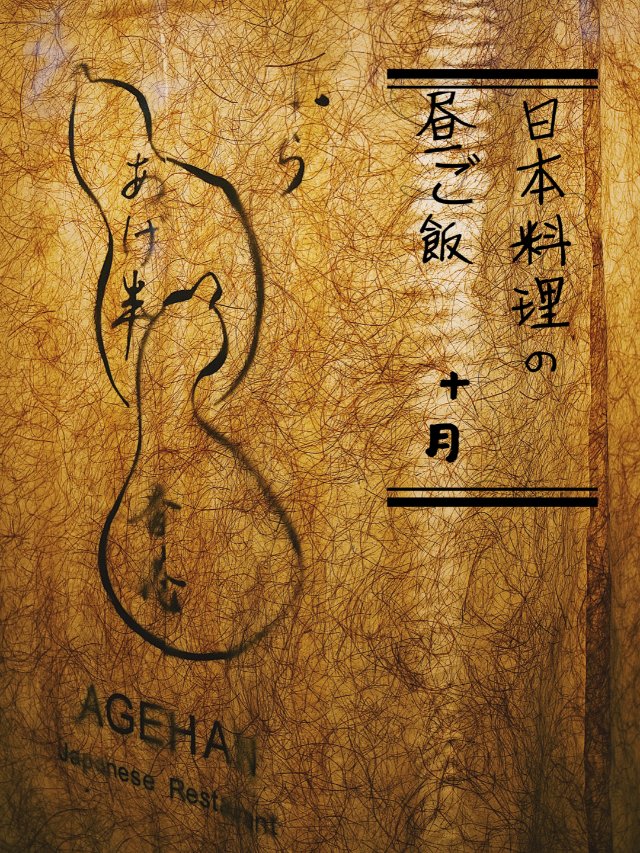 日本料理の
昼ご飯 十月
あげ半
AGEHAN
Japanese Restaurant